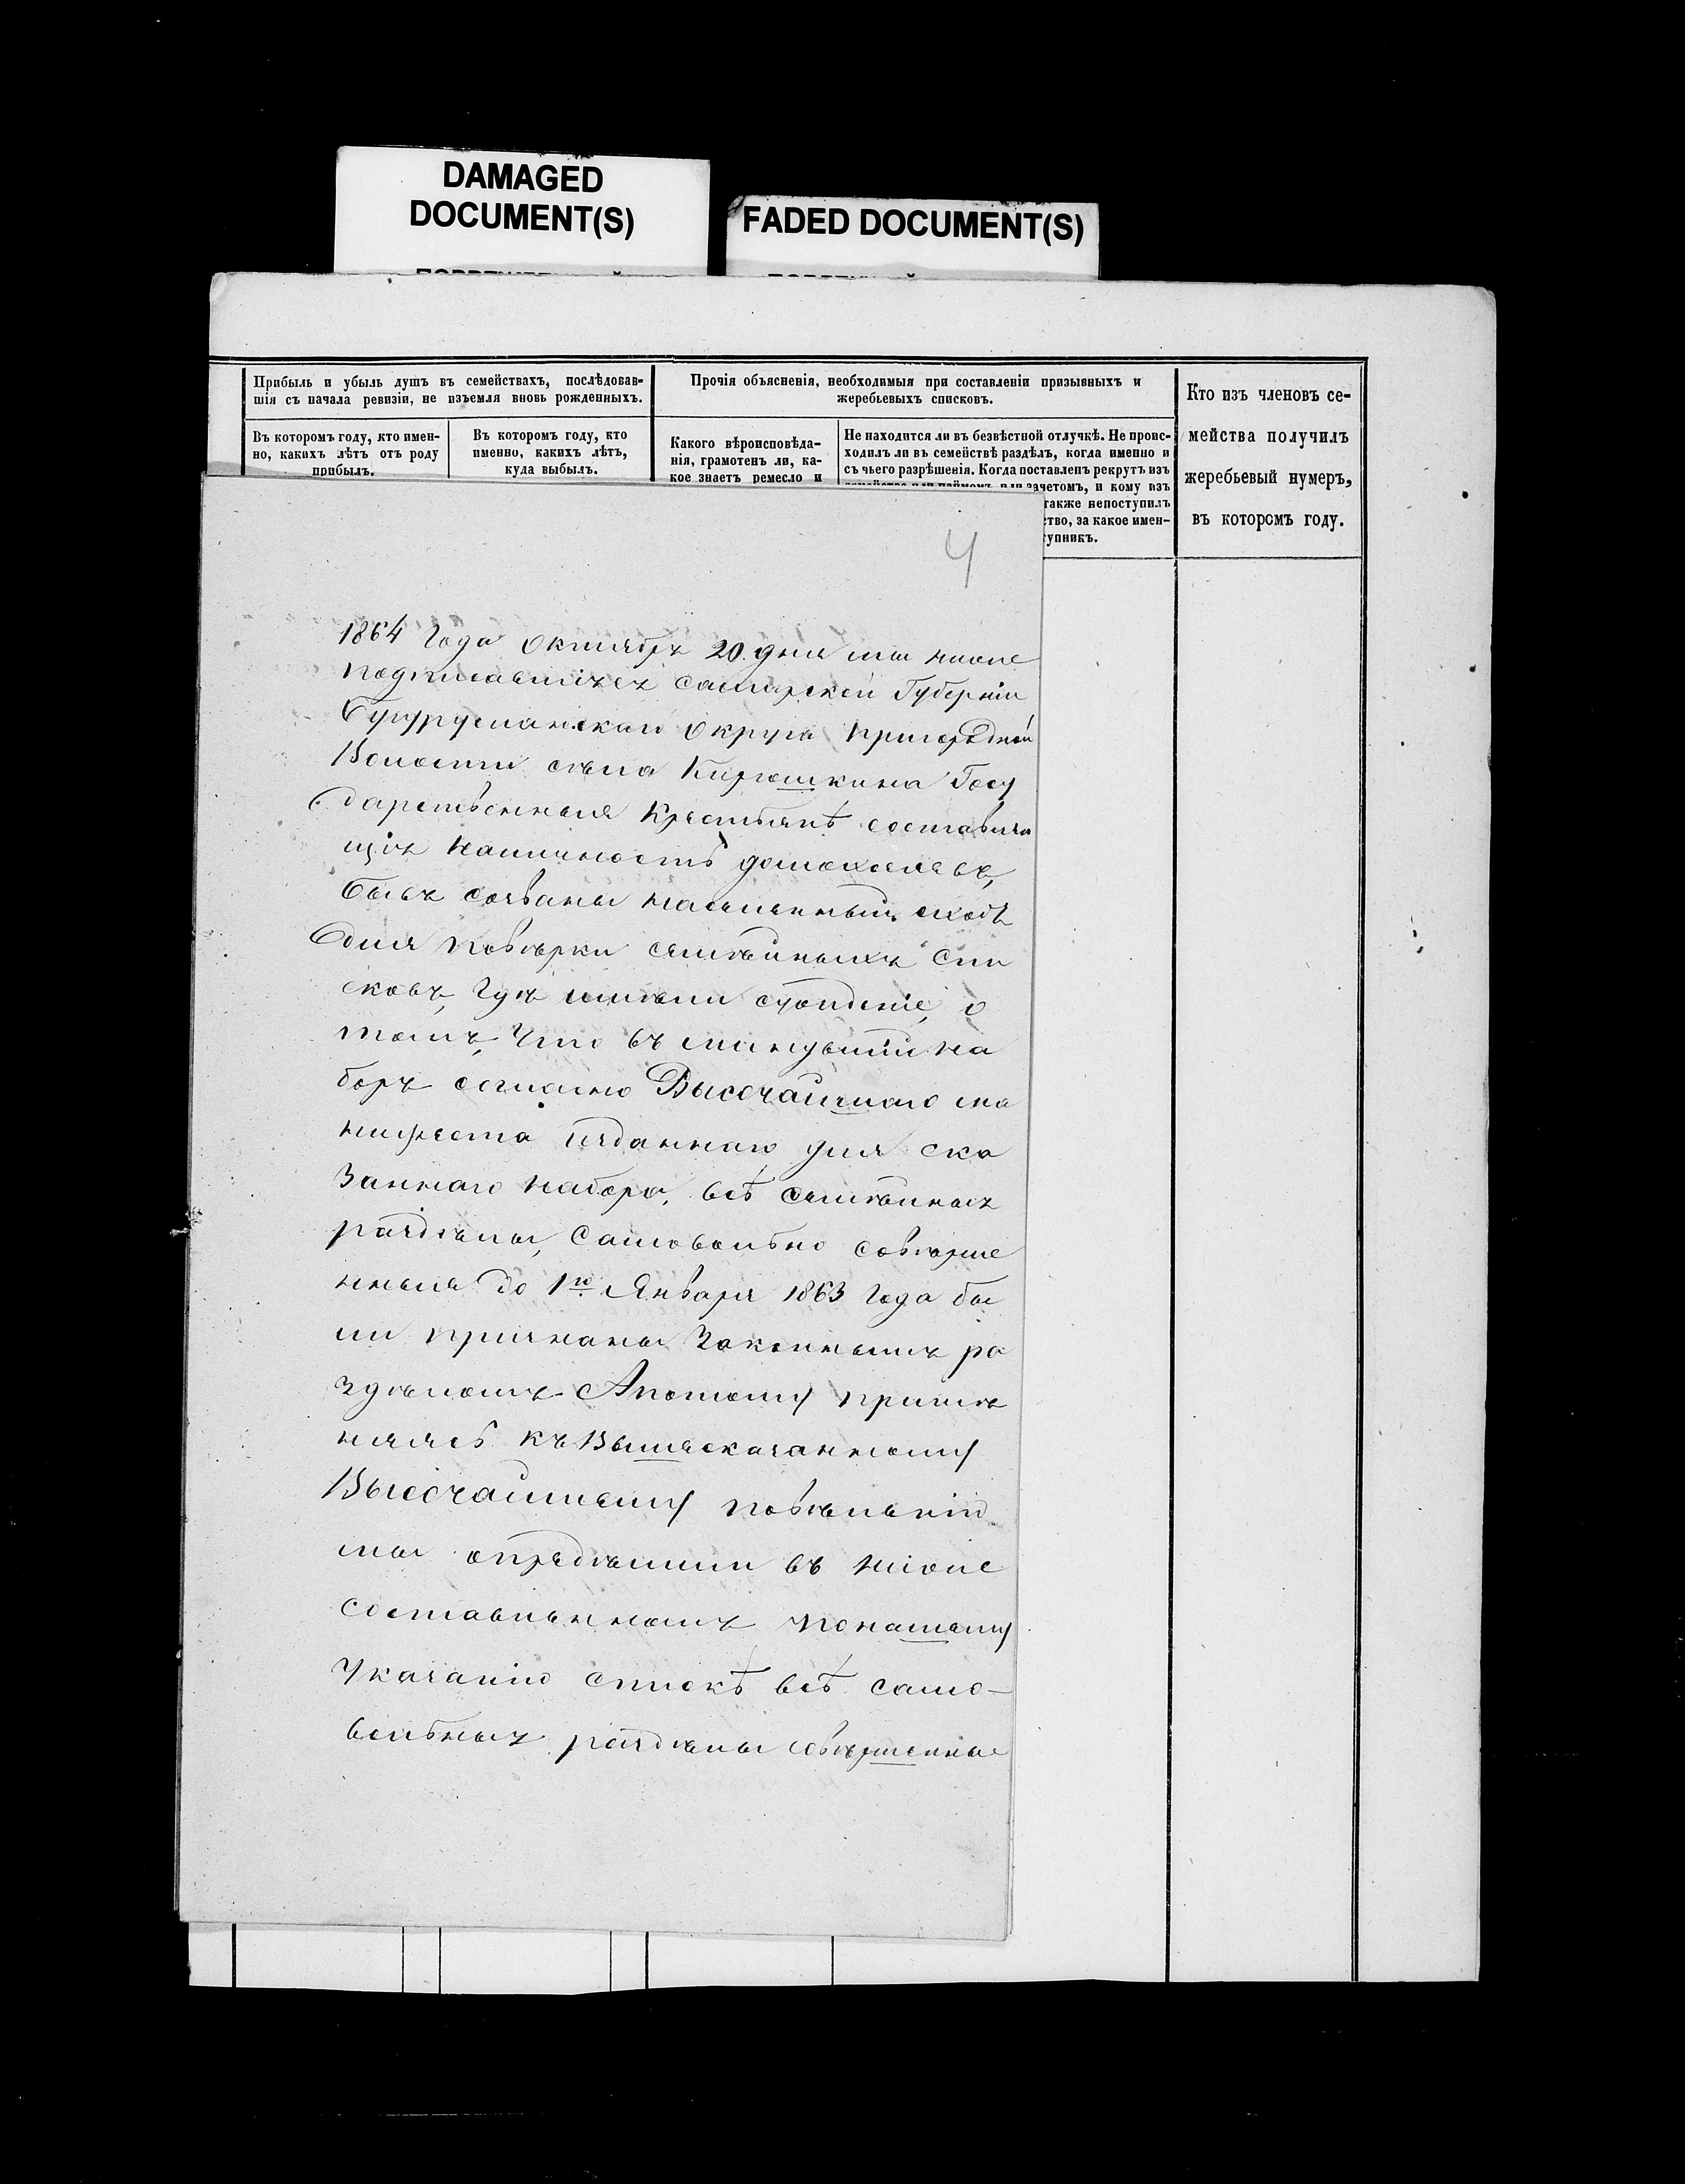 DAMAGED
DOCUMENT(S)
FADED DOCUMENT(S)
Прибыль и убыль душъ въ семействахъ, послѣдовав-
шія съ начала ревизіи, не изъемля вновь рожденныхъ.
Прочія объясненія, необходимыя при составленіи призывныхъ и
жеребьевыхъ списковъ.
Кто изъ членовъ се-
мейства получилъ
жеребьевый нумеръ,
въ которомъ году.
Въ которомъ году, кто имен-
но, какихъ лѣтъ отъ роду
прибылъ.
Въ которомъ году, кто
именно, какихъ лѣтъ,
куда выбылъ.
Какого вѣроисповѣда-
нія, грамотенъ ли, ка-
кое знаетъ ремесло и
Не находится ли въ безвѣстной отлучкѣ. Не проис-
ходилъ ли въ семействѣ раздѣлъ, когда именно и
съ чьего разрѣшенія. Когда поставленъ рекрутъ изъ
зачетомъ, и кому изъ
также непоступилъ
ство, за какое имен-
тупникъ.
4
1864 Года Октября 20. дня мы ниже
подписавшіеся Самарской Губерніи
Бугурусланскаго Округа Пригородной
Волости села Кирюшкина Госу
дарственныя Крестьянѣ составляю
щія наличность домохозяевъ,
бывъ созваны насельный сходъ
для повѣрки семѣйныхъ спи
сковъ, Гдѣ имѣли сужденіе, о
томъ, Что въ минувшій на
боръ согласно Высочайшаго ма
нифеста изданнаго для ска
заннаго набора, всѣ семѣйныя
раздѣлы, самовольно совѣрше
нныя до 1го Января 1863 Года бы
ли признаны Законнымъ ра
здѣломъ Апотому примѣ
няясь къ Вышесказанному
Высочайшему повѣленію
мы опредѣлили въ ниже
составленномъ понашему
Указанію спискѣ всѣ само-
вольныя раздѣлы совѣршенные